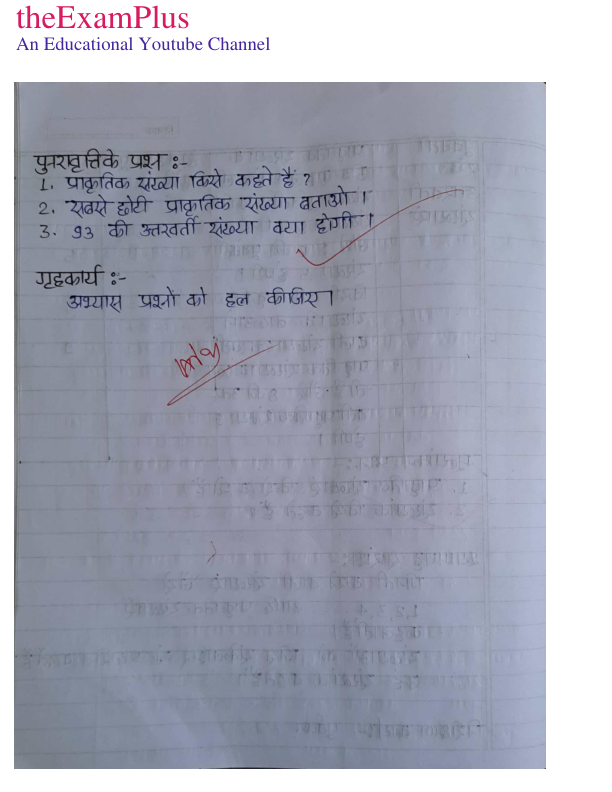 theExamPlus
An Educational Youtube Channel
पुनरावृत्तिके प्रश्न :-
1. प्राकृतिक संख्या किसे कहते हैं ?
2. सबसे छोटी प्राकृतिक संख्या बताओ।
3. 93 की उत्तरवर्ती संख्या क्या होगी।
गृहकार्य :-
अभ्यास प्रश्नों को हल कीजिए।